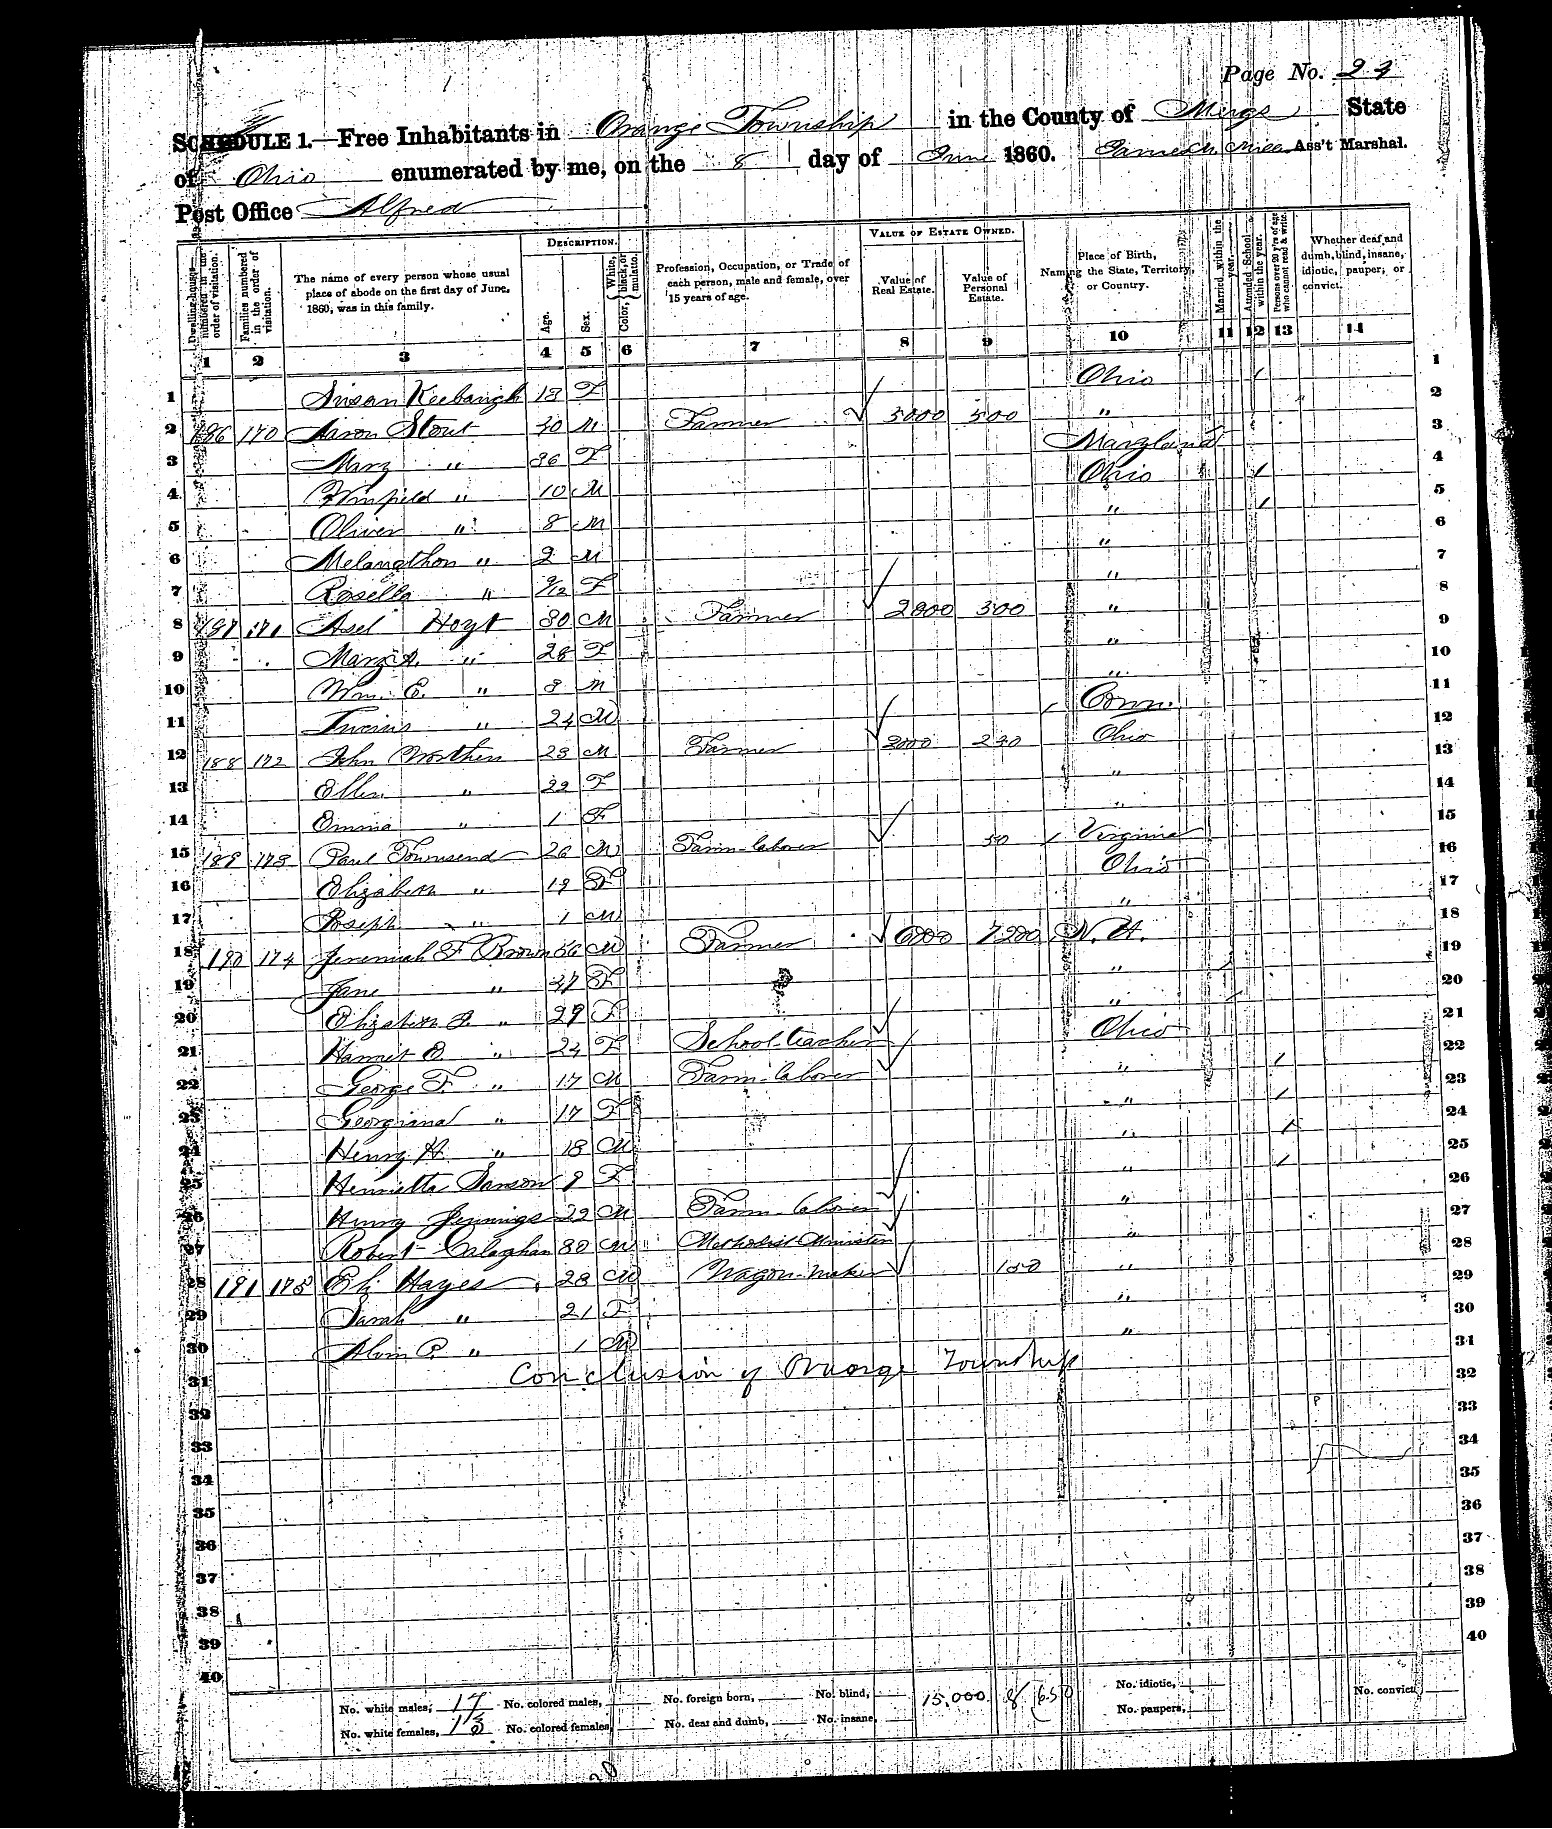 Page No. 24
SCHEDULE 1.—Free Inhabitants in Orange Township in the County of Meigs State
of Ohio enumerated by me, on the 8 day of June 1860. Ass't Marshal.
Post Office Alfred
Dwelling-houses numbered in the order of visitation.
Families numbered in the order of visitation.
The name of every person whose usual place of abode on the first day of June, 1860, was in this family.
DESCRIPTION.
Age.
Sex.
Color, White, black, or mulatto.
Profession, Occupation, or Trade of each person, male and female, over 15 years of age.
VALUE OF ESTATE OWNED.
Value of Real Estate.
Value of Personal Estate.
Place of Birth, Naming the State, Territory, or Country.
Married within the year.
Attended School within the year.
Persons over 20 y'rs of age who cannot read & write.
Whether deaf and dumb, blind, insane, idiotic, pauper, or convict.
1 2 3 4 5 6 7 8 9 10 11 12 13 14
1 Susan Keebaugh 13 F Ohio / 1
2 186 170 Aaron Stout 30 M Farmer 3000 500 " 2
3 Mary " 36 F Maryland 3
4 Winfield " 10 M Ohio / 4
5 Oliver " 8 M " / 5
6 Melangthon " 2 M " 6
7 Rosella " 9/12 F " 7
8 187 171 Asel Hoyt 30 M Farmer 2000 300 " 8
9 Mary A. " 28 F " 9
10 Wm. E. " 3 M " 10
11 " 24 M Conn. 11
12 188 172 John Worthen 23 M Farmer 2000 230 Ohio 12
13 Ellen " 22 F " 13
14 Emma " 1 F " 14
15 189 173 Paul Townsend 26 M Farm-laborer 50 Virginia 15
16 Elizabeth " 19 F Ohio 16
17 Joseph " 1 M " 17
18 190 174 Jeremiah F Brown 56 M Farmer 7200 N. H. 18
19 Jane " 47 F " 19
20 Elizabeth " 29 F " 20
21 Harriet E. " 24 F School-teacher Ohio 21
22 George F. " 17 M Farm-laborer " / 22
23 Georgiana " 17 F " / 23
24 Henry H. " 13 M " / 24
25 Henrietta Sanson 9 F " / 25
26 Henry Jennings 22 M Farm-laborer " 26
27 Robert Calaghan 30 M Methodist Minister " 27
28 191 175 Eli Hayes 28 M Wagon-maker 150 " 28
29 Sarah " 21 F " 29
30 " 1 M " 30
31 Conclusion of Orange Township 31
32 32
33 33
34 34
35 35
36 36
37 37
38 38
39 39
40 40
No. white males, 17 No. colored males, No. foreign born, No. blind, 15,000 8,650 No. idiotic, No. convict,
No. white females, 13 No. colored females, No. deaf and dumb, No. insane, No. paupers,